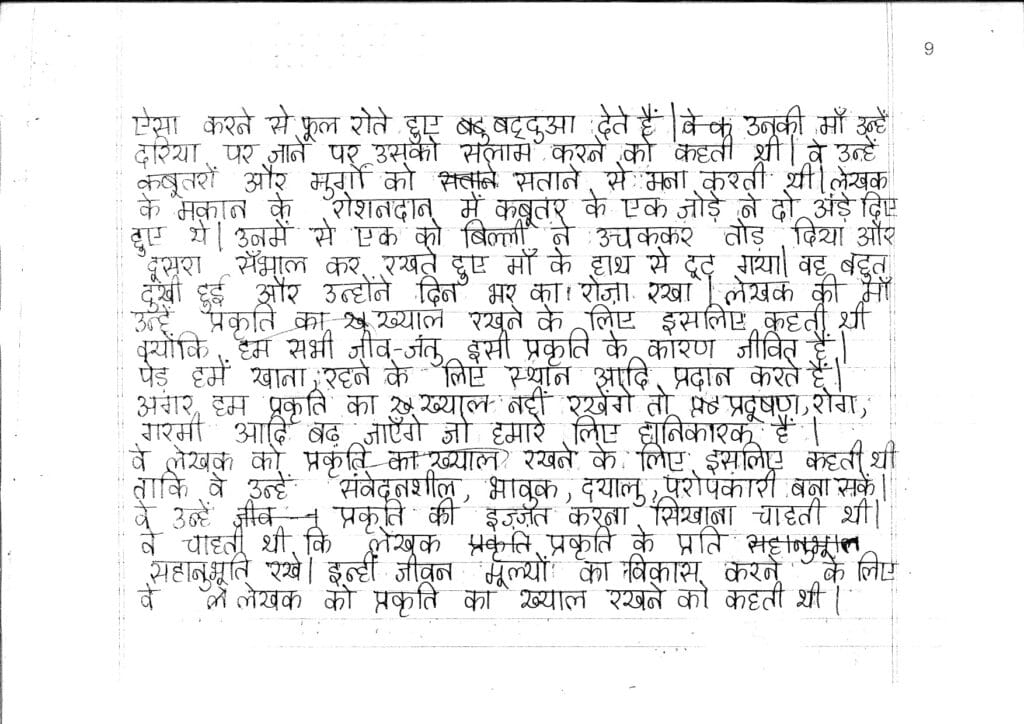 9
ऐसा करने से फूल रोते हुए बददुआ देते हैं। उनकी माँ उन्हें
दरिया पर जाने पर उसको सलाम करने को कहती थी। वे उन्हें
कबूतरों और मुर्गों को सताने सताने से मना करती थी। लेखक
के मकान के रोशनदान में कबूतर के एक जोड़े ने दो अंडे दिए
हुए थे। उनमें से एक को बिल्ली ने उचककर तोड़ दिया और
दूसरा सँभाल कर रखते हुए माँ के हाथ से टूट गया। वह बहुत
दुखी हुई और उन्होंने दिन भर का रोज़ा रखा। लेखक की माँ
उन्हें प्रकृति का ख्याल रखने के लिए इसलिए कहती थी
क्योंकि हम सभी जीव-जंतु इसी प्रकृति के कारण जीवित हैं।
पेड़ हमें खाना, रहने के लिए स्थान आदि प्रदान करते हैं।
अगर हम प्रकृति का ख्याल नहीं रखेंगे तो प्रदूषण, रोग,
गरमी आदि बढ़ जाएँगे जो हमारे लिए हानिकारक हैं।
वे लेखक को प्रकृति का ख्याल रखने के लिए इसलिए कहती थी
ताकि वे उन्हें संवेदनशील, भावुक, दयालु, परोपकारी बना सकें।
वे उन्हें जीव प्रकृति की इज़्ज़त करना सिखाना चाहती थी।
वे चाहती थी कि लेखक प्रकृति प्रकृति के प्रति सहानुभूति
सहानुभूति रखे। इन्हीं जीवन मूल्यों का विकास करने के लिए
वे लेखक को प्रकृति का ख्याल रखने को कहती थी।